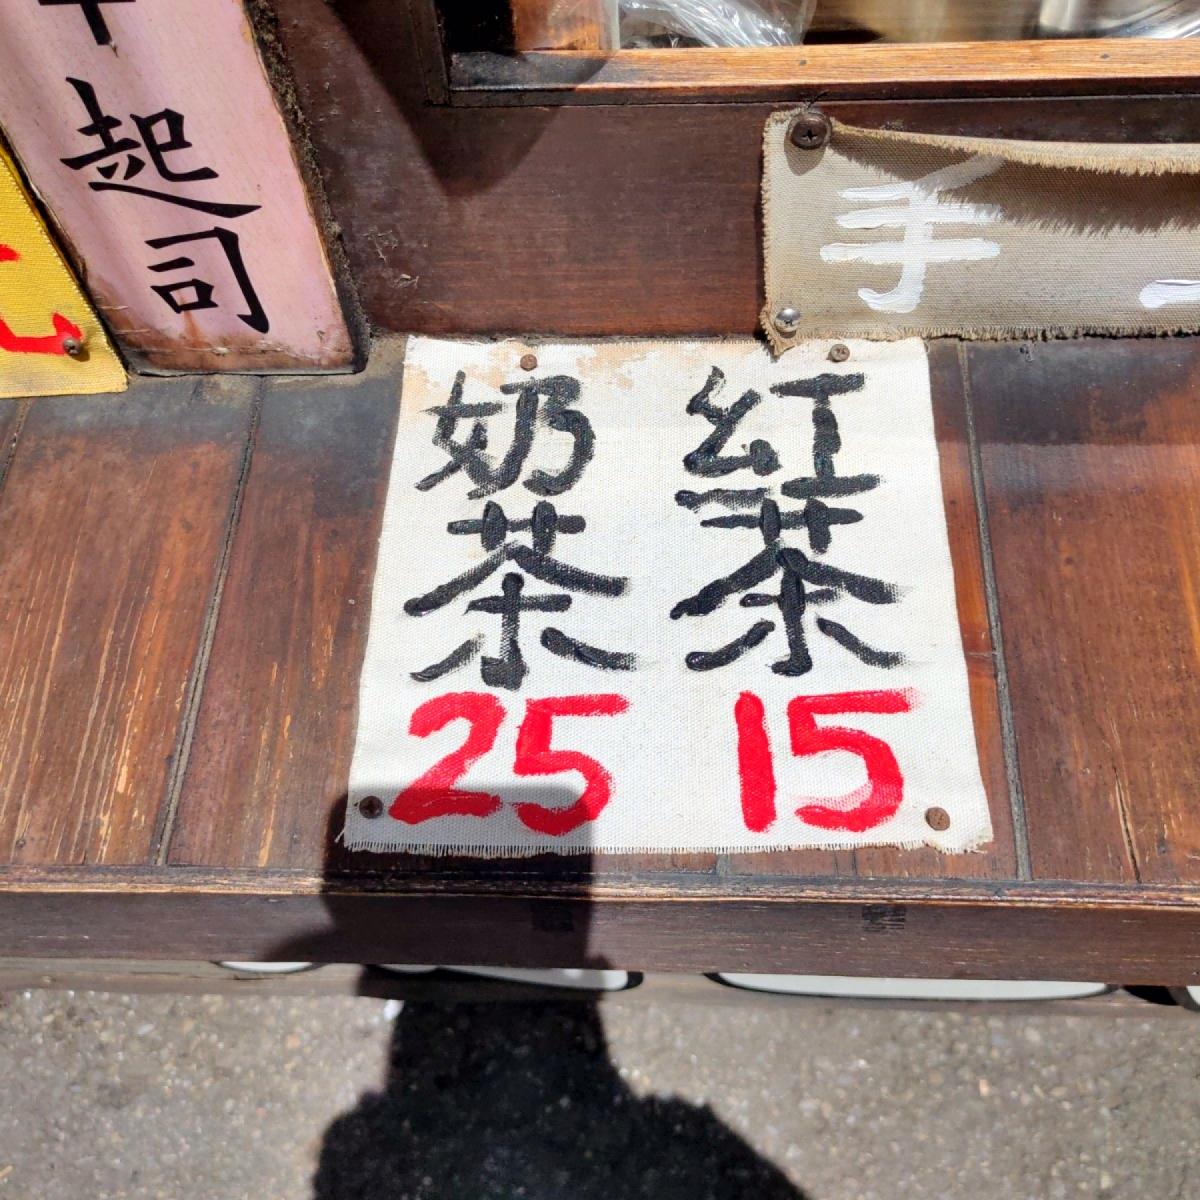 起司
手
紅茶
15
奶茶
25